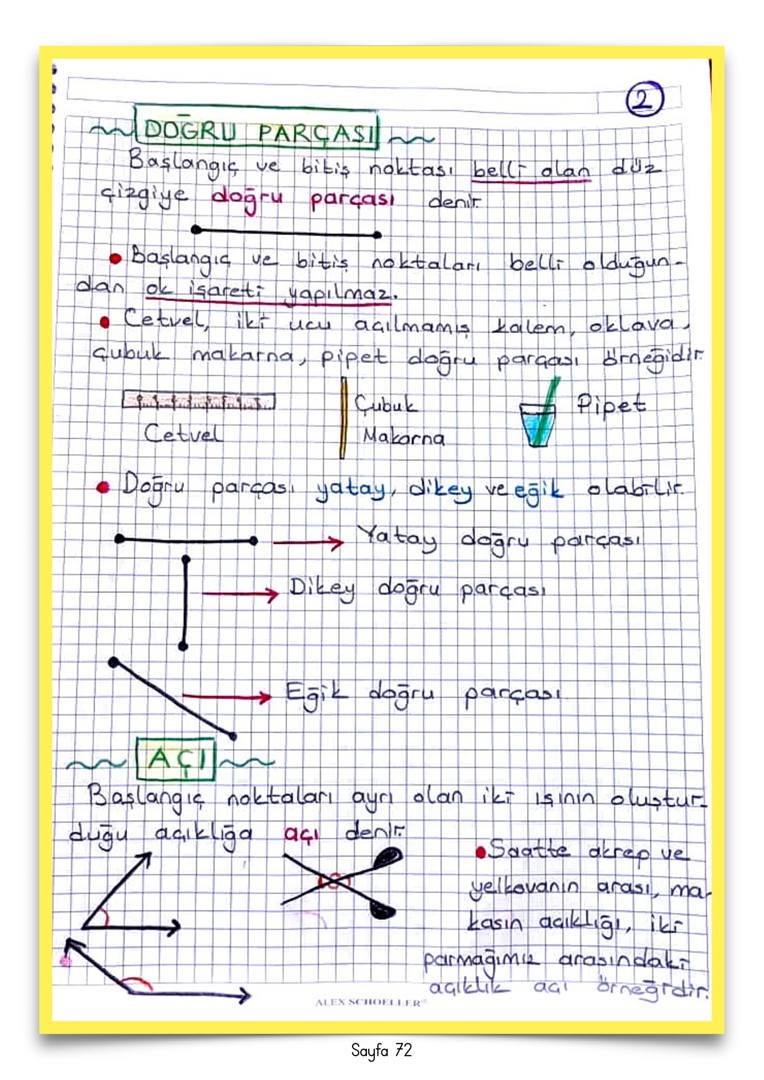 2
DOĞRU PARÇASI
Başlangıç ve bitiş noktası belli olan düz
çizgiye doğru parçası denir.
• Başlangıç ve bitiş noktaları belli olduğun-
dan ok işareti yapılmaz.
• Cetvel, iki ucu açılmamış kalem, oklava,
çubuk makarna, pipet doğru parçası örneğidir.
Cetvel
Çubuk
Makarna
Pipet
• Doğru parçası yatay, dikey ve eğik olabilir.
Yatay doğru parçası
Dikey doğru parçası
Eğik doğru parçası
AÇI
Başlangıç noktaları ayrı olan iki ışının oluştur-
duğu açıklığa açı denir.
• Saatte akrep ve
yelkovanın arası, ma-
kasın açıklığı, iki
parmağımız arasındaki
açıklık açı örneğidir.
ALEX SCHOELLER®
Sayfa 72